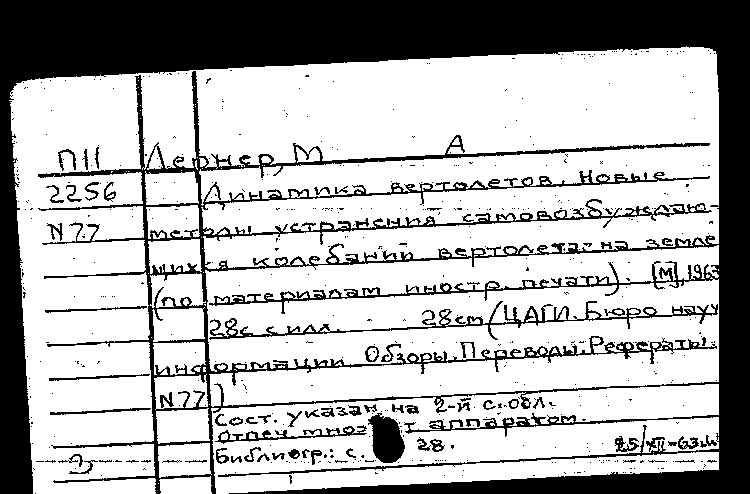 П11 Лернер, М А
2256 Динамика вертолетов. Новые
N77 методы устранения самовозбуждаю-
щихся колебаний вертолета на земле
(по материалам иностр. печати). [М], 1963
28с с илл. 28см (ЦАГИ. Бюро науч
информации. Обзоры. Переводы. Рефераты.
N77)
Сост. указан на 2-й с. обл.
Отпеч. аппаратом.
Библиогр.: с. 28. 25/XII-63